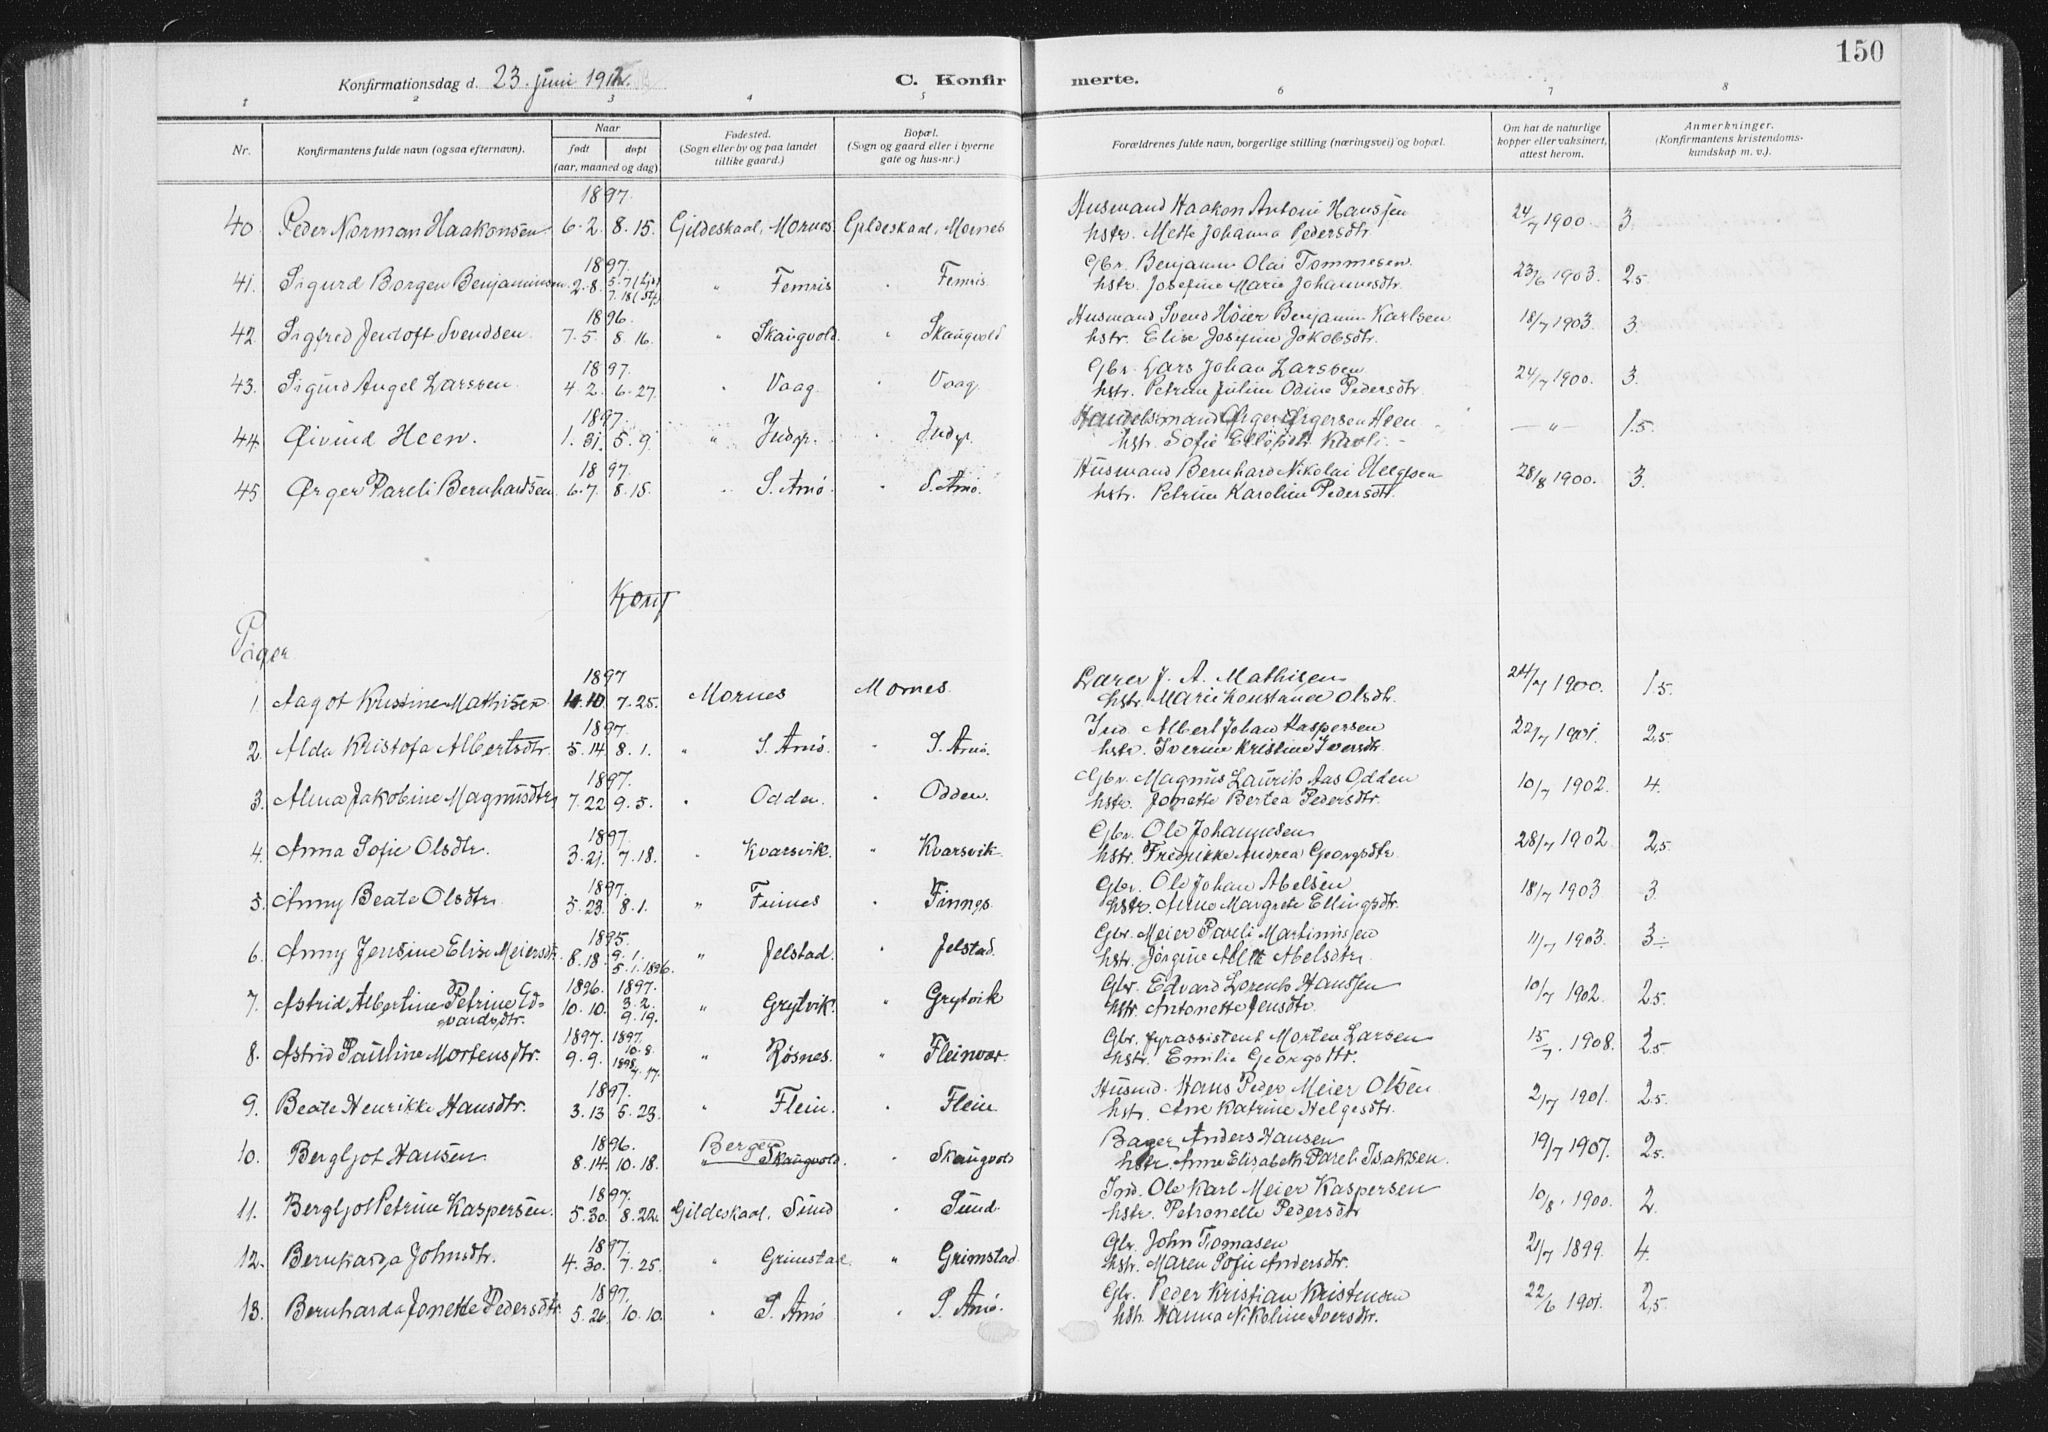 150
Konfirmationsdag d. 23. juni 1912.
C. Konfirmerte.
1 2 3 4 5 6 7 8
Nr.
Konfirmantens fulde navn (ogsaa efternavn).
Naar
født døpt
(aar, maaned og dag)
Fødested.
(Sogn eller by og paa landet
tillike gaard.)
Bopæl.
(Sogn og gaard eller i byerne
gate og hus-nr.)
Forældrenes fulde navn, borgerlige stilling (næringsvei) og bopæl.
Om hat de naturlige
kopper eller vaksinert,
attest herom.
Anmerkninger.
(Konfirmantens kristendoms-
kundskap m. v.).
1897.
Husmand Haakon Antoni Hansen
40. Peder Norman Haakonsen 6.2. 8.15. Gildeskaal, Mornes. Gildeskaal, Mornes 24/7 1900. 3.
hstr. Mette Johanna Pedersdtr.
1897.
Gbr. Benjamin Olai Tommesen.
41. Sigurd Borgen Benjaminsen 2.8. 5.7 (hj.) " Femris " Femris 23/6 1903. 2,5
7.18 (st.)
hstr. Josefine Marie Johannesdtr.
1896.
Husmand Svend Höier Benjamin Karlsen
42. Sigfred Jentoft Svendsen 7.5. 8.16. " Skaugvold. " Skaugvold 18/7 1903. 3.
hstr. Elise Josefine Jakobsdtr.
1897.
Gbr. Lars Johan Larssen
43. Sigurd Angel Larssen 4.2. 6.27. " Vaag. " Vaag. 24/7 1900. 3.
hstr. Petrine Juline Odine Pedersdtr.
1897.
Handelsmand Ørger Ørgersen Heen
44. Øivind Heen. 1.31. 5.9. " Indyr. " Indyr. — " — 1.5.
hstr. Sofie
1897.
Husmand Bernhard Nikolai Helgesen
45. Ørger Pareli Bernhardsen 6.7. 8.15. " S. Arnö. " S. Arnö. 28/8 1900. 3.
hstr. Petrine Karoline Pedersdtr.
Konf
Piger
1897
Lærer J. A. Mathisen
1. Aagot Kristine Mathisen 4.10 7.25. Mornes Mornes. 24/7 1900. 1.5.
hstr. Marie Konstance Olsdtr.
1897.
Ind. Albert Johan Kaspersen
2. Alda Kristofa Albertsdtr. 5.14 8.1. " S. Arnö. " S. Arnö. 22/7 1901. 2,5.
hstr. Iverine Kristine Iversdtr.
1897.
Gbr. Magnus Laurits Aas Odden
3. Alma Jakobine Magnusdtr. 7.22 9.5. " Odden. " Odden. 10/7 1902. 4.
hstr. Jonette Bertea Pedersdtr.
1897.
Gbr. Ole Johannesen
4. Anna Sofie Olsdtr. 3.21. 7.18. " Kvarsvik. " Kvarsvik. 28/7 1902. 2,5.
hstr. Fredrikke Andrea Georgsdtr.
1897.
Gbr. Ole Johan Abelsen
5. Anny Beate Olsdtr. 5.23. 8.1. " Finnes " Finnes. 18/7 1903 3.
hstr. Anne Margrete Ellingsdtr.
1895.
Gbr. Meier Pareli Martinussen
6. Anny Jensine Elise Meiersdtr. 8.18. 9.1. " Jelstad. " Jelstad. 11/7 1903. 3 ÷
5.1.1896.
hstr. Jörgine Abelsdtr.
1896. 1897.
Gbr. Edvard Lorents Hanssen
7. Astrid Albertine Petrine Ed- 10.10. 3.2. " Grytvik. " Grytvik 10/7 1902. 2,5.
vardsdtr. 9.19.
hstr. Antonette Jensdtr.
1897. 1897.
Gbr. fyrassistent Morten Larsen
8. Astrid Pauline Mortensdtr. 9.9. 10.8. " Røsnes. " Fleinvær. 15/7. 1908. 2,5.
1898 7.17.
hstr. Emilie Georgsdtr.
1897.
Husmd. Hans Peder Meier Olsen
9. Beate Henrikke Hansdtr. 3.13 5.23. " Flein. " Flein. 2/7 1901. 2.5.
hstr. Ane Katrine Helgesdtr.
1896. Bergen
Bager Anders Hansen
10. Bergljot Hansen 8.14. 10.18. " Skaugvold. " Skaugvold 19/7 1907. 2,5.
hstr. Anne Elisabeth Pareli Isaksen.
1897.
Ind. Ole Karl Meier Kaspersen
11. Bergljot Petrine Kaspersen. 5.30. 8.22. Gildeskaal, Sund " Sund. 10/8. 1900. 2.
hstr. Petronelle Pedersdtr
1897.
Gbr. John Tomasen
12. Bernharda Johnsdtr. 4.30. 7.25. " Grimstad. " Grimstad 21/7 1899. 4.
hstr. Maren Sofie Andersdtr.
1897.
Gbr. Peder Kristian Kristensen
13. Bernharda Jonette Pedersdtr 5.26. 10.10. " S. Arnö " S. Arnö. 22/6 1901. 2,5.
hstr. Hanna Nikoline Iversdtr.